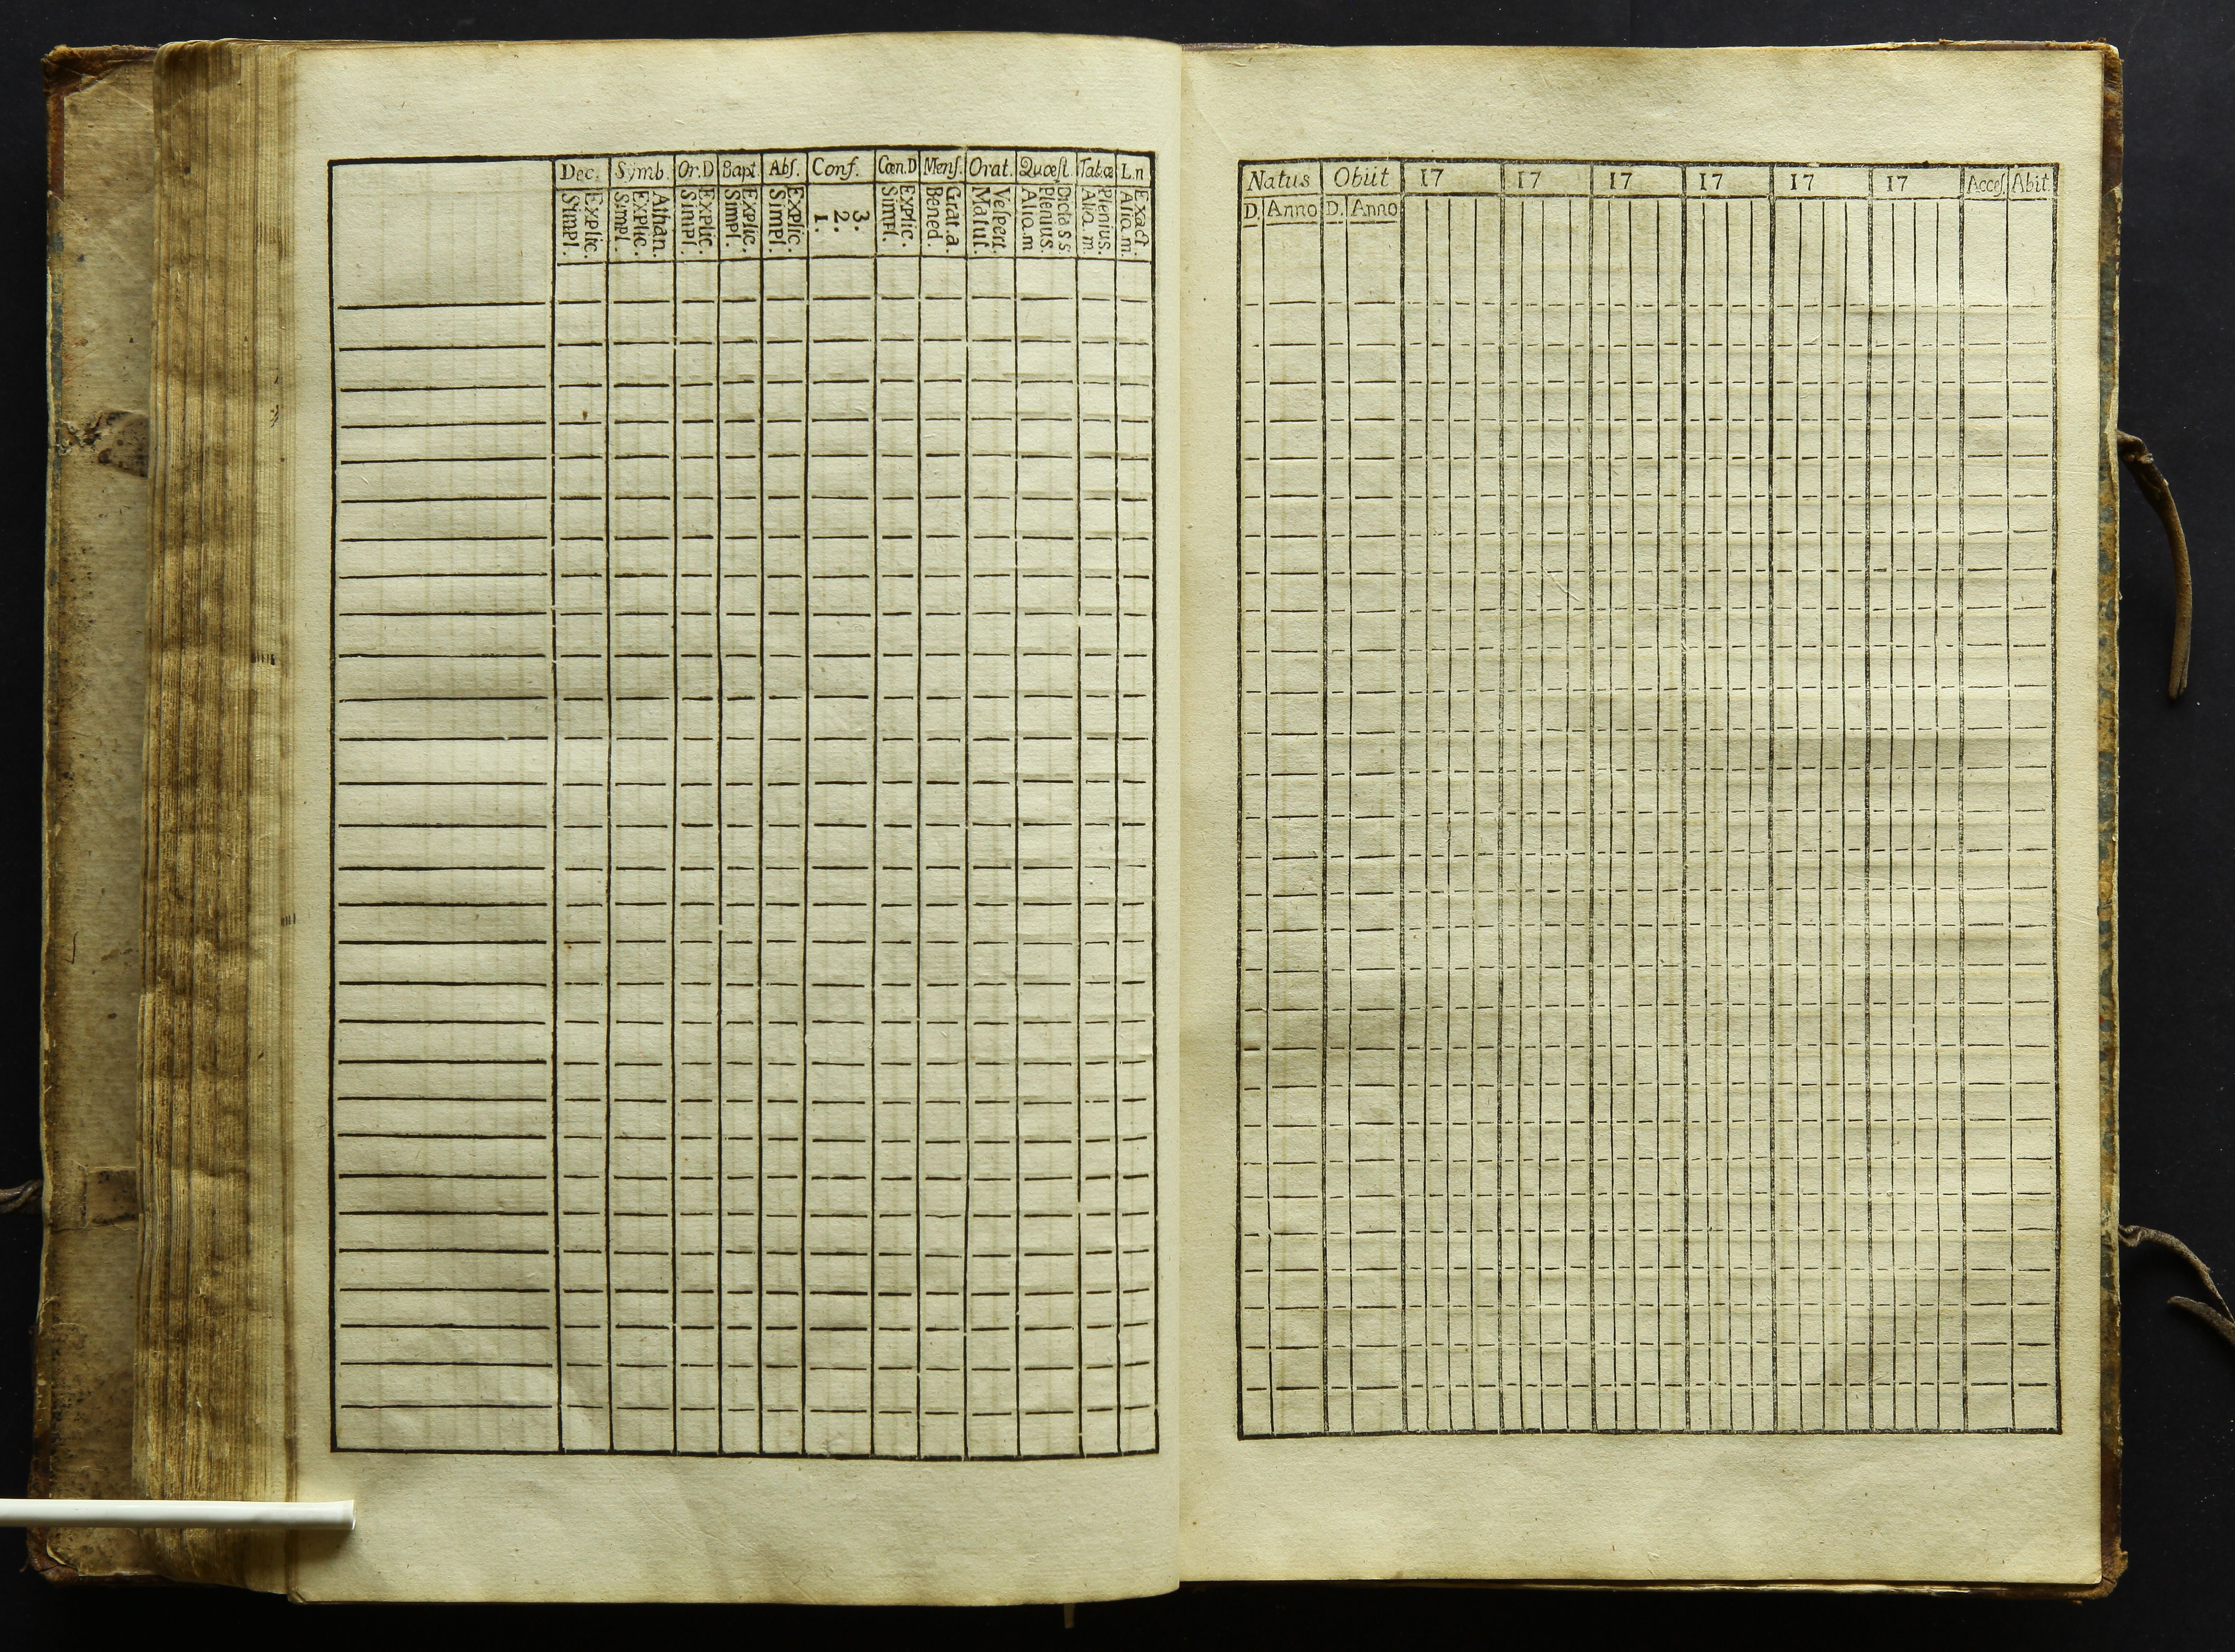 Dec. Symb. Or.D Bapt. Abs. Conf. Cœn.D Mens. Orat. Quæst. Tab.œ L.n
Simpl. Explic.
Simpl. Explic. Athan.
Simpl. Explic.
Simpl. Explic.
Simpl. Explic.
1. 2. 3.
Simpl. Explic.
Bened. Grat.a.
Matut. Vespert.
Aliq.m Plenius. Dicta s.s.
Aliq.m Plenius.
Aliq.m. Exact.
Natus Obiit 17 17 17 17 17 17 Acces. Abit.
D. Anno D. Anno